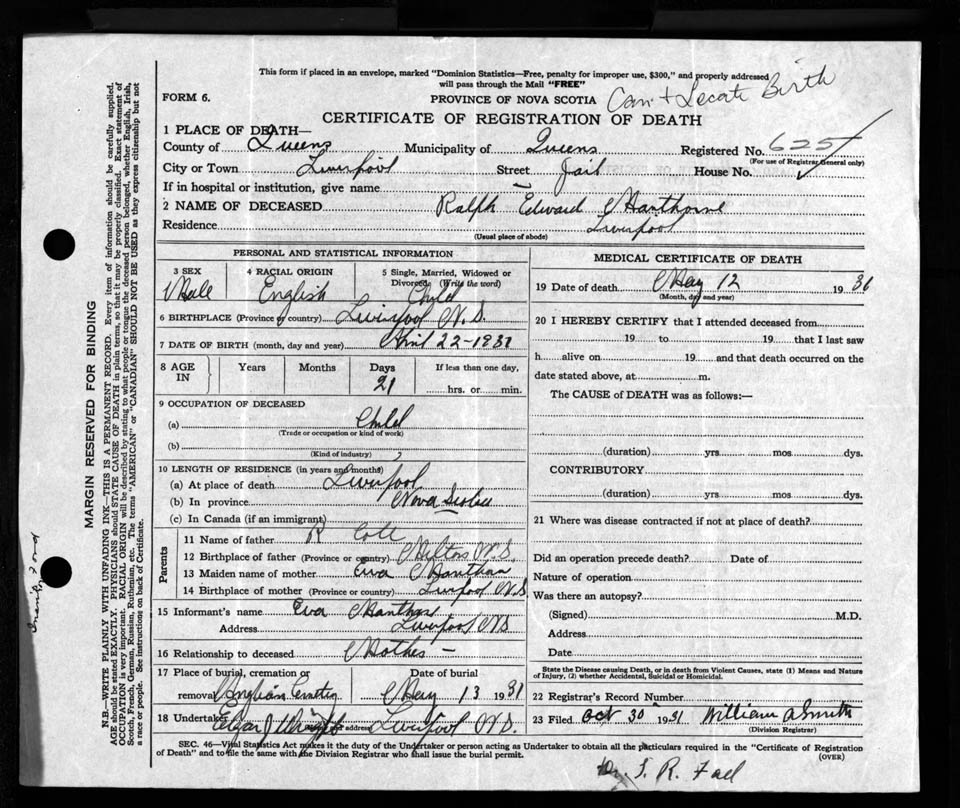 This form if placed in an envelope, marked "Dominion Statistics—Free, penalty for improper use, $300," and properly addressed
will pass through the Mail "FREE"
FORM 6. PROVINCE OF NOVA SCOTIA Can't Locate Birth
CERTIFICATE OF REGISTRATION OF DEATH
1 PLACE OF DEATH—
County of Queens Municipality of Queens Registered No. 6257
(For use of Registrar General only)
City or Town Liverpool Street Jail House No.
If in hospital or institution, give name
2 NAME OF DECEASED Ralph Edward
Residence Liverpool
(Usual place of abode)
PERSONAL AND STATISTICAL INFORMATION
3 SEX 4 RACIAL ORIGIN 5 Single, Married, Widowed or Divorced (Write the word)
Male English Child
6 BIRTHPLACE (Province or country) Liverpool N.S.
7 DATE OF BIRTH (month, day and year) April 22-1931
8 AGE IN Years Months Days If less than one day,
21 hrs. or min.
9 OCCUPATION OF DECEASED
(a) Child
(Trade or occupation or kind of work)
(b)
(Kind of industry)
10 LENGTH OF RESIDENCE (in years and months)
(a) At place of death Liverpool
(b) In province Nova Scotia
(c) In Canada (if an immigrant)
Parents
11 Name of father R
12 Birthplace of father (Province or country) Milton N.S
13 Maiden name of mother Eva
14 Birthplace of mother (Province or country) Liverpool N.S
15 Informant's name Eva
Address Liverpool N.S
16 Relationship to deceased Mother —
17 Place of burial, cremation or removal Date of burial
May 13 1931
18 Undertaker Edgar address Liverpool N.S.
MEDICAL CERTIFICATE OF DEATH
19 Date of death May 12 19
(Month, day and year)
20 I HEREBY CERTIFY that I attended deceased from
19 to 19 that I last saw
h alive on 19 and that death occurred on
date stated above, at m.
The CAUSE of DEATH was as follows:—
(duration) yrs mos dys.
CONTRIBUTORY
(duration) yrs mos dys.
21 Where was disease contracted if not at place of death?
Did an operation precede death? Date of
Nature of operation
Was there an autopsy?
(Signed) M.D.
Address
Date
State the Disease causing Death, or in death from Violent Causes, state (1) Means and Nature
of Injury, (2) whether Accidental, Suicidal or Homicidal.
22 Registrar's Record Number
23 Filed Oct 30 1931 William A Smith
(Division Registrar)
SEC. 46—Vital Statistics Act makes it the duty of the Undertaker or person acting as Undertaker to obtain all the particulars required in the "Certificate of Registration
of Death" and to file the same with the Division Registrar who shall issue the burial permit. (OVER)
Dr. R.
MARGIN RESERVED FOR BINDING
N.B.—WRITE PLAINLY WITH UNFADING INK—THIS IS A PERMANENT RECORD. Every item of information should be carefully supplied.
AGE should be stated EXACTLY. PHYSICIANS should STATE CAUSE OF DEATH in plain terms, so that it may be properly classified. Exact statement of
OCCUPATION is very important. RACIAL ORIGIN will be described by stating to what people or tongue the deceased person belonged, whether English, Irish,
Scotch, French, German, Russian, Ruthenian, etc. The terms "AMERICAN" or "CANADIAN" SHOULD NOT BE USED as they express citizenship but not
a race or people. See instructions on back of Certificate.